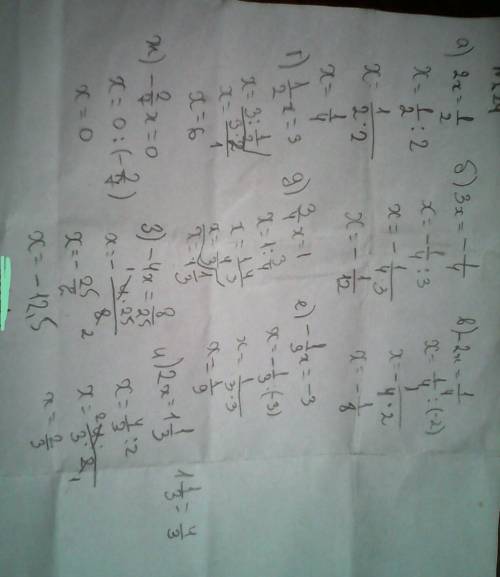 а) 2x = 1/2
x = 1/2 : 2
x = 1/2·2
x = 1/4
б) 3x = -1/4
x = -1/4 : 3
x = -1/4·3
x = -1/12
в) -2x = 1/4
x = 1/4 : (-2)
x = -1/4·2
x = -1/8
г) 1/2 x = 3
x = 3 : 1/2
x = 3·2/1
x = 6
д) 3/4 x = 1
x = 1 : 3/4
x = 1·4/3
x = 1 1/3
е) -1/3 x = -3
x = 1/3 : (-3)
x = 1/3·3
x = 1/9
ж) -2/7 x = 0
x = 0 : (-2/7)
x = 0
з) -4x = 8/25
x = -4·25/8
x = -25/2
x = -12,5
и) 2x = 1 1/3
1 1/3 = 4/3
x = 4/3 : 2
x = 4/3·2
x = 2/3